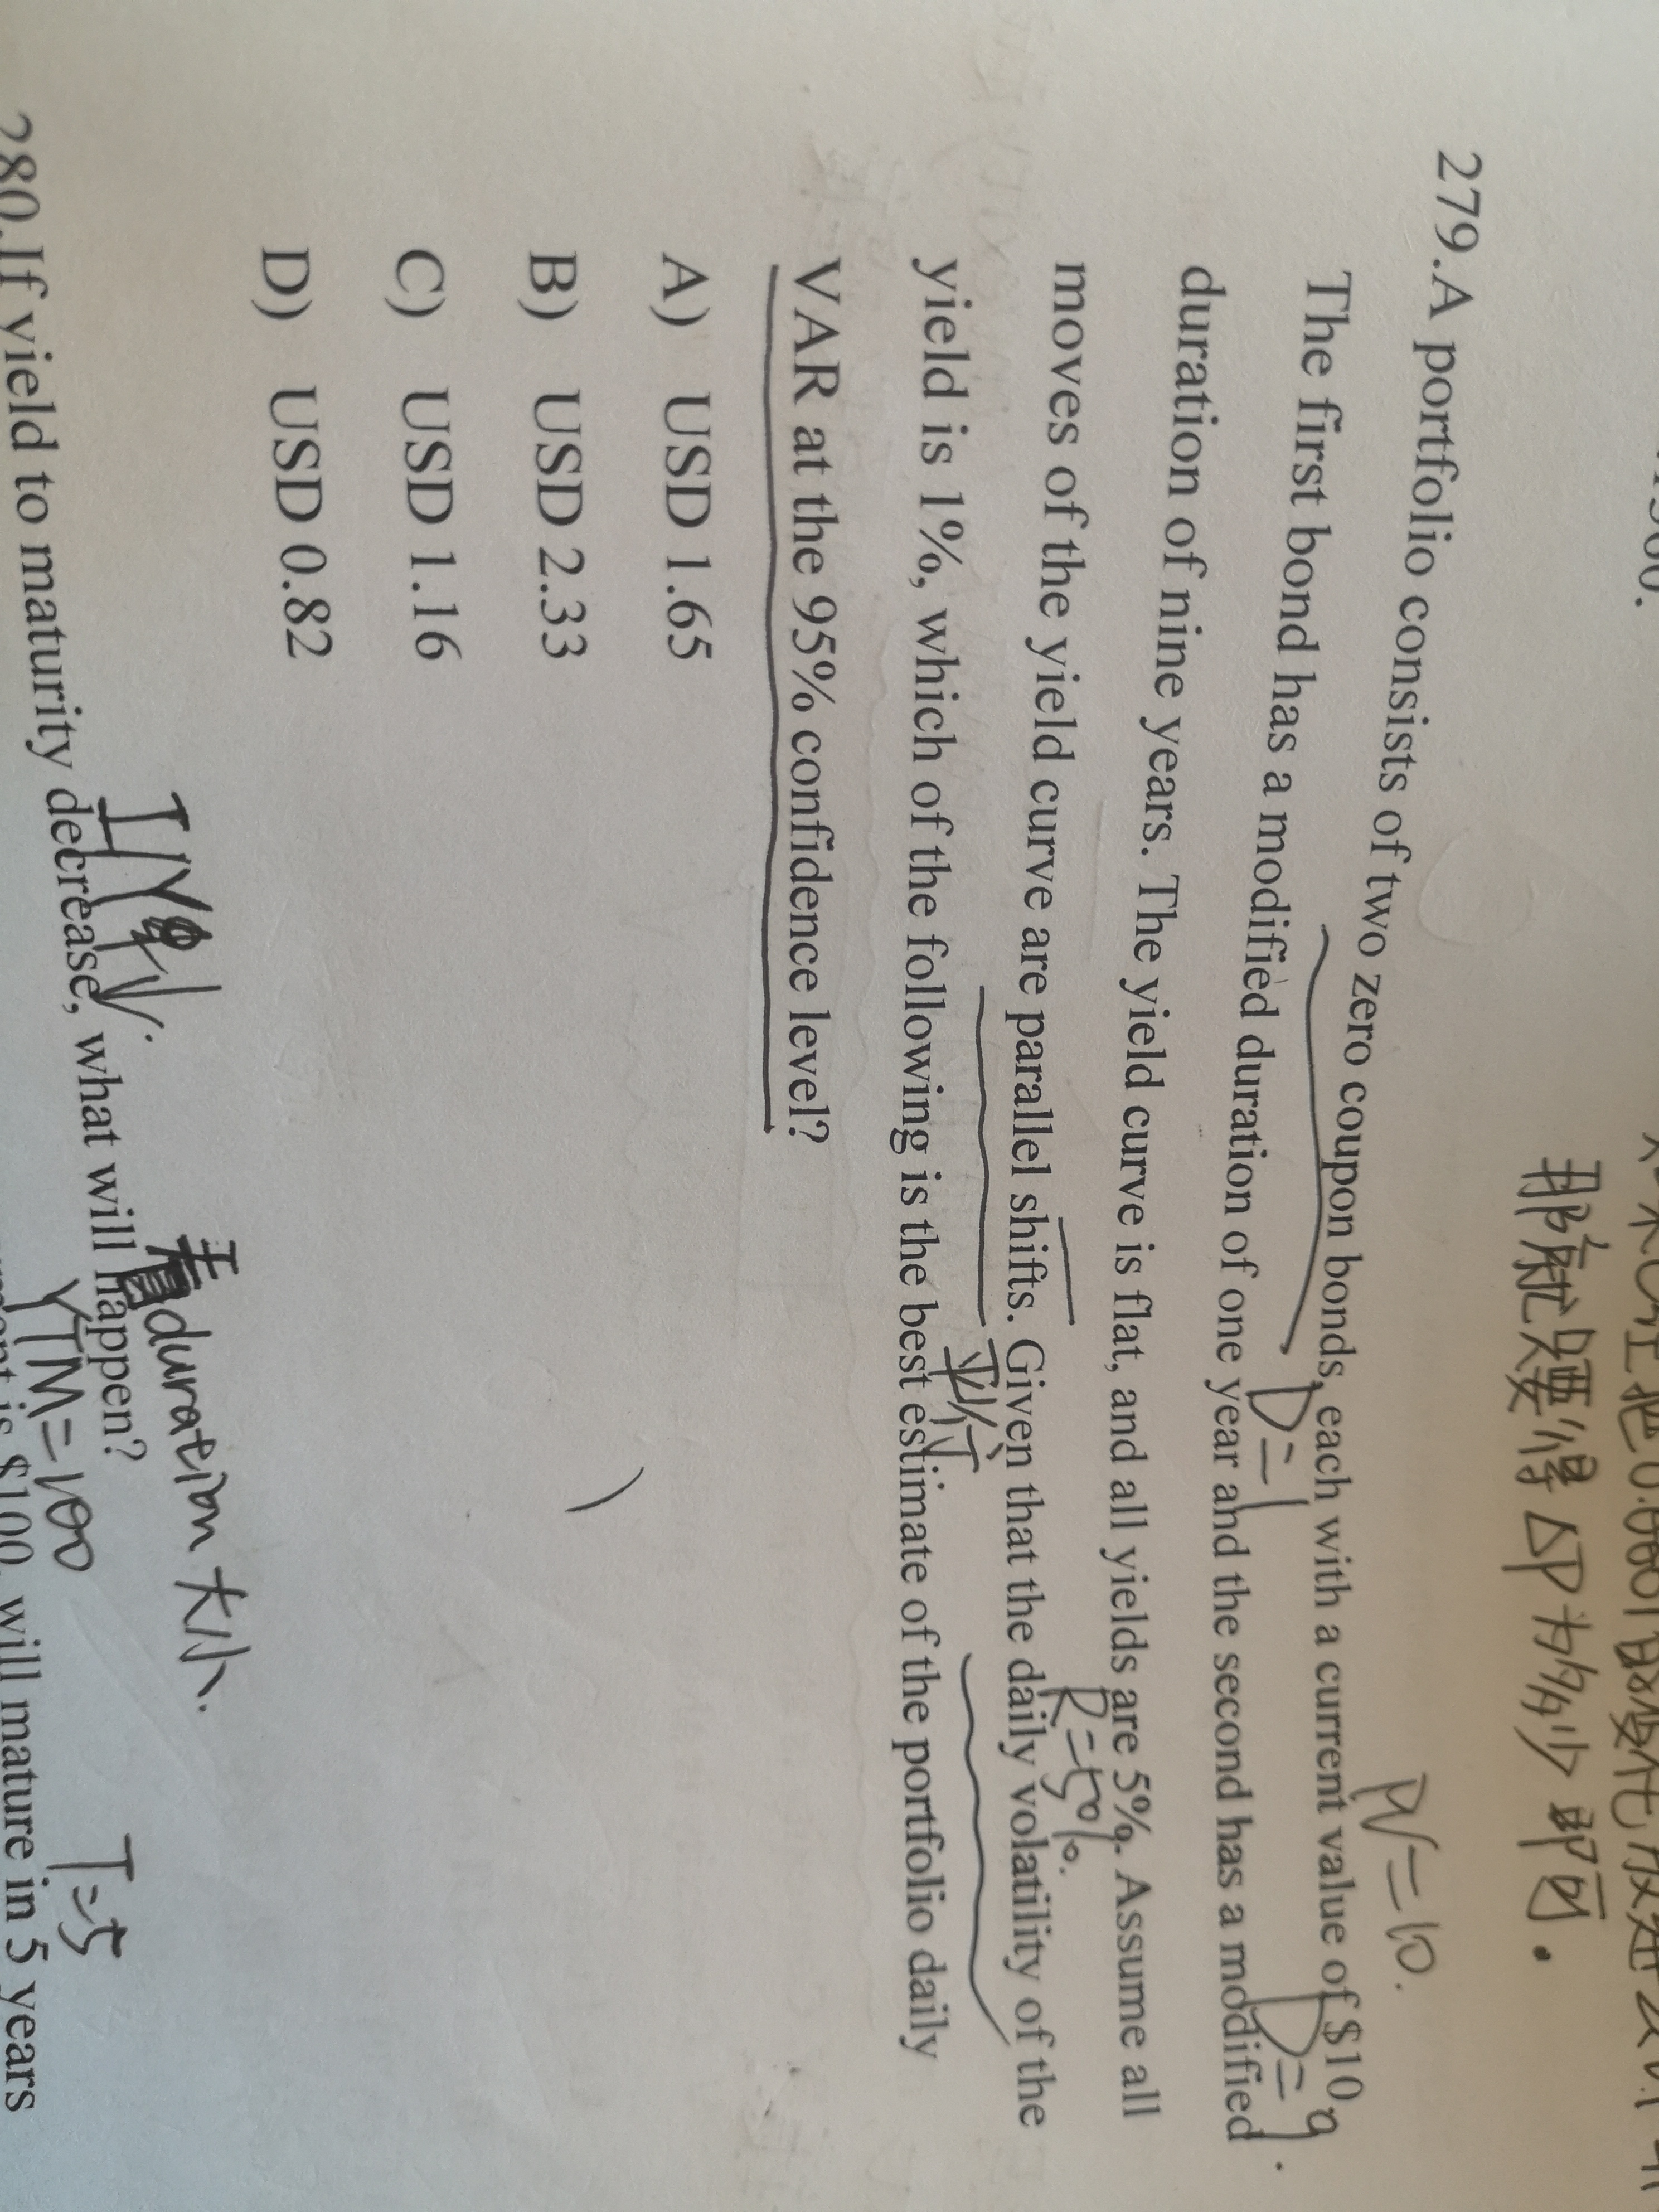 那就要得 ΔP为多少 即可.
PV=10.
279.A portfolio consists of two zero coupon bonds, each with a current value of $10.
The first bond has a modified duration of one year and the second has a modified
D=1
D=9.
duration of nine years. The yield curve is flat, and all yields are 5%. Assume all
R=5%.
moves of the yield curve are parallel shifts. Given that the daily volatility of the
平行
yield is 1%, which of the following is the best estimate of the portfolio daily
VAR at the 95% confidence level?
A) USD 1.65
B) USD 2.33
C) USD 1.16
D) USD 0.82
看duration 大小.
280.If yield to maturity decrease, what will happen?
YTM=100
T=5
is $100, will mature in 5 years